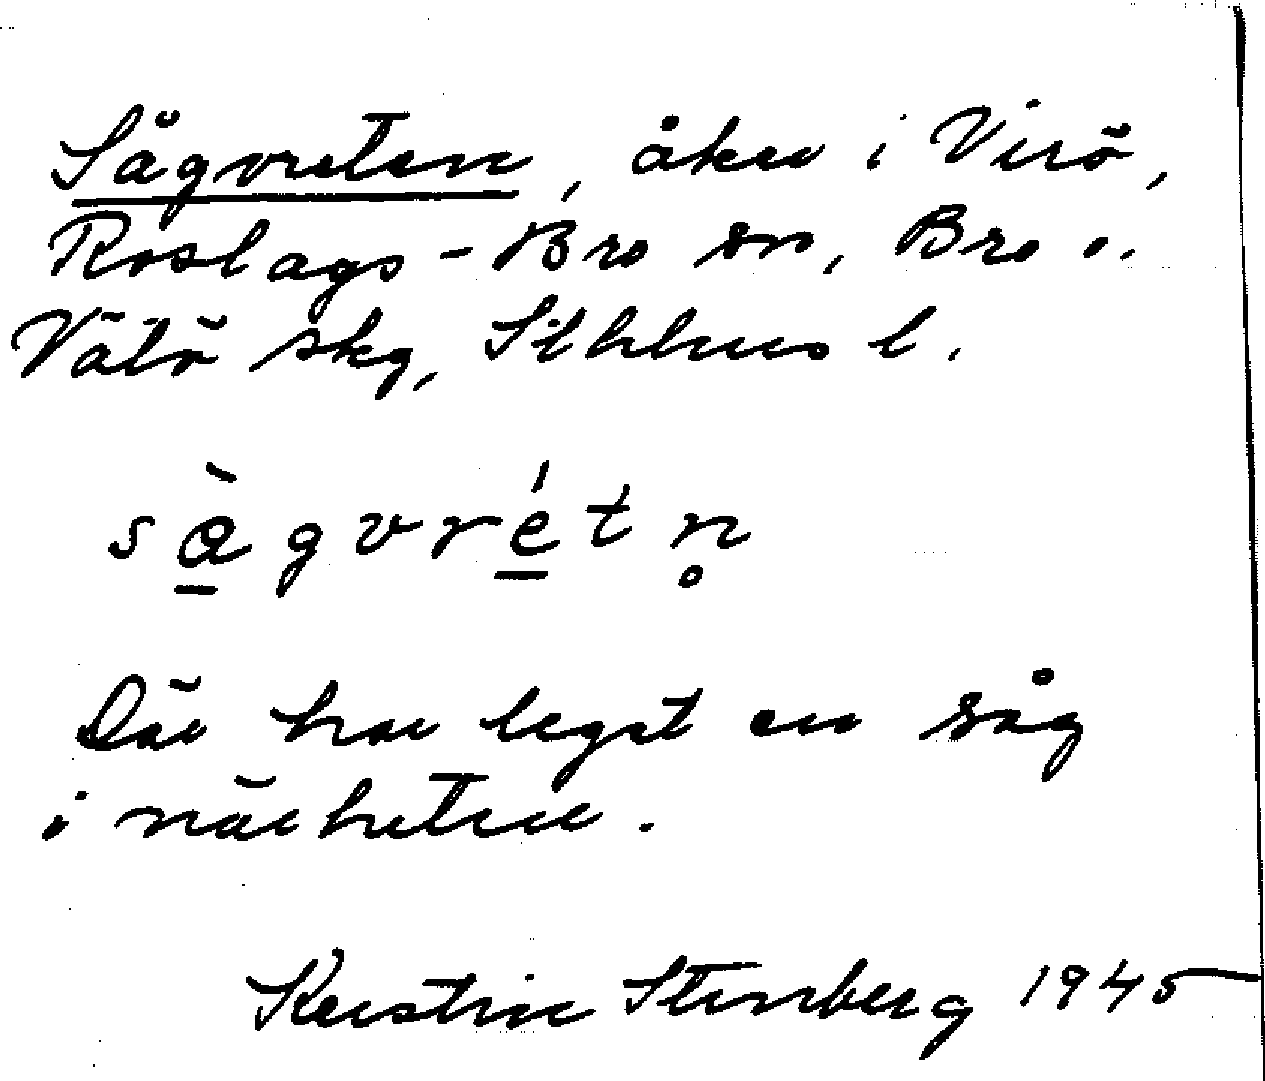 Sågvreten, åker i Virö,
Roslags-Bro sn, Bro o.
Vätö skg, Sthlms l.
sàgvrétn̥
Där har legat en såg
i närheten.
Kerstin Stenberg 1945